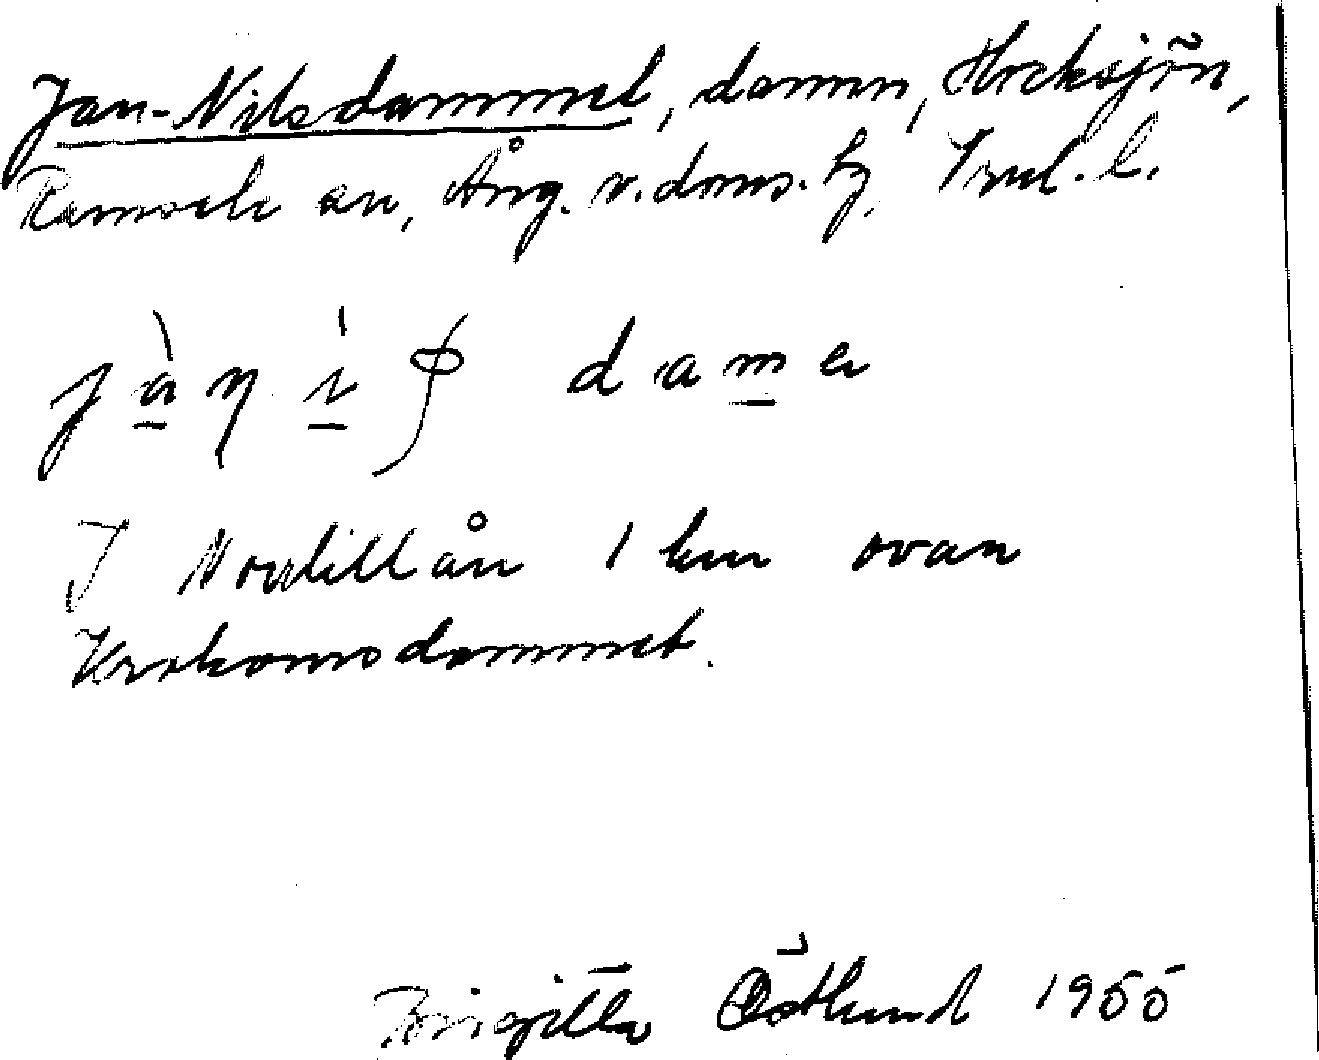 Jan-Nilsdammet, damm, Hocksjön,
Ramsele sn, Ång. v. doms. tg, Vnl. l.
dame
I Norlillån 1 km ovan
Krokomsdammet.
Birgitta Östlund 1955